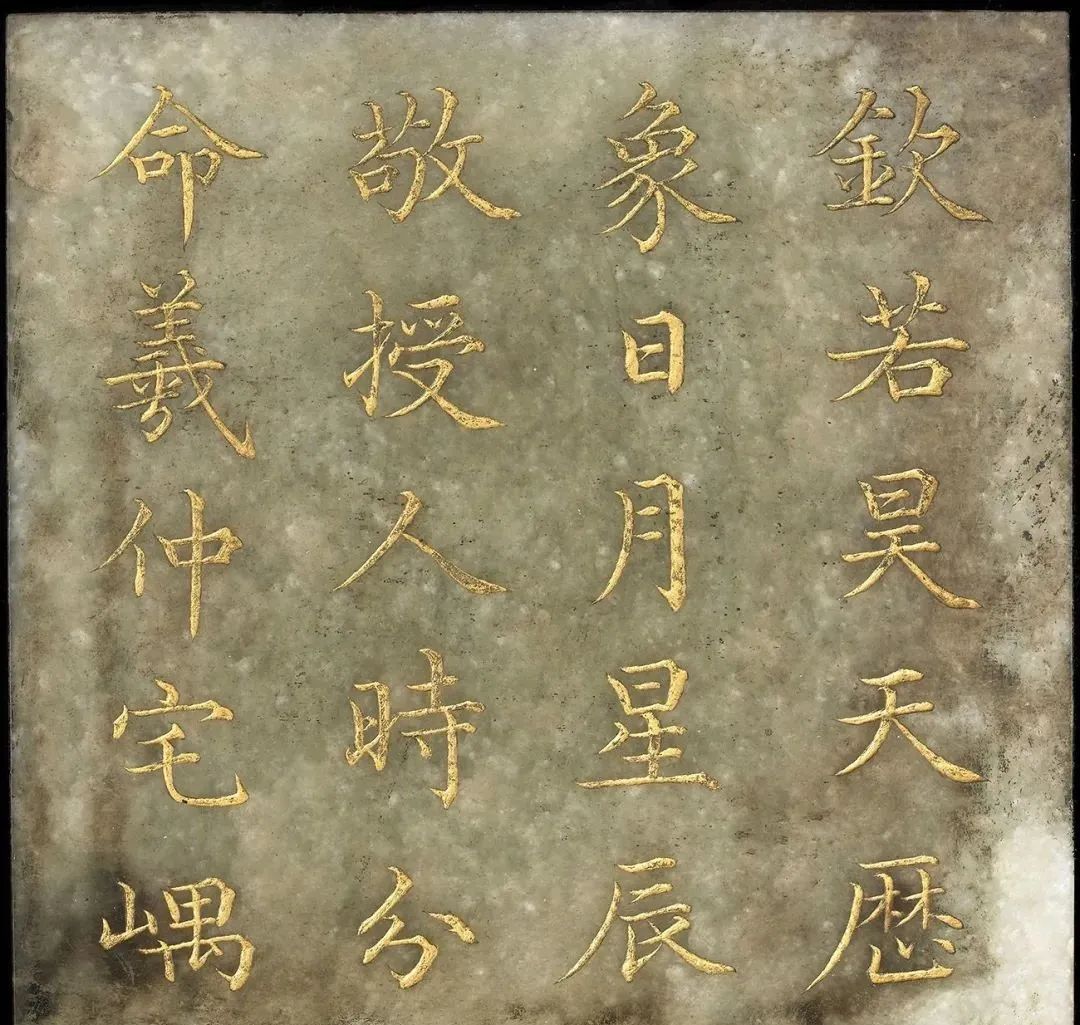 欽若昊天歴
象日月星辰
敬授人時分
命羲仲宅嵎